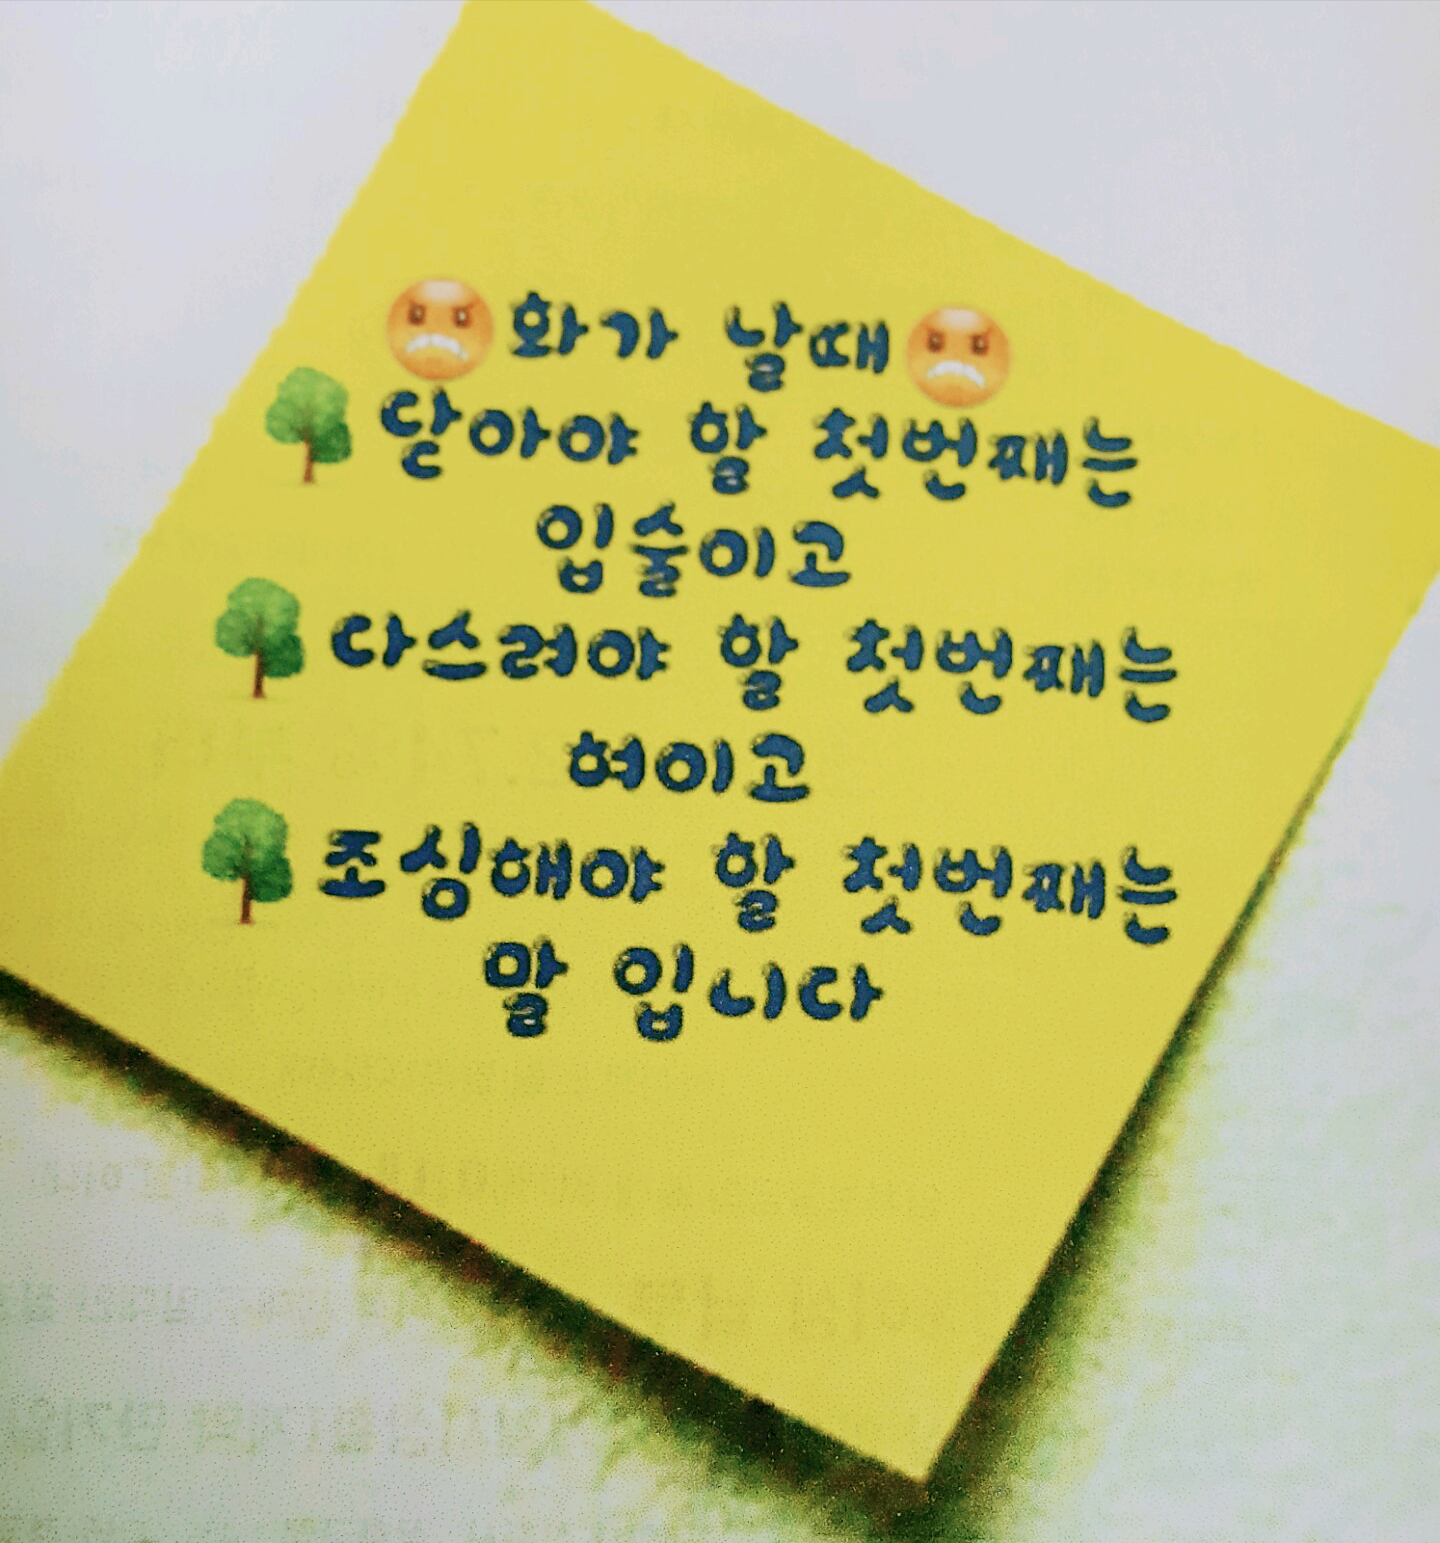 화가 날때
닫아야 할 첫번째는
입술이고
다스려야 할 첫번째는
혀이고
조심해야 할 첫번째는
말 입니다